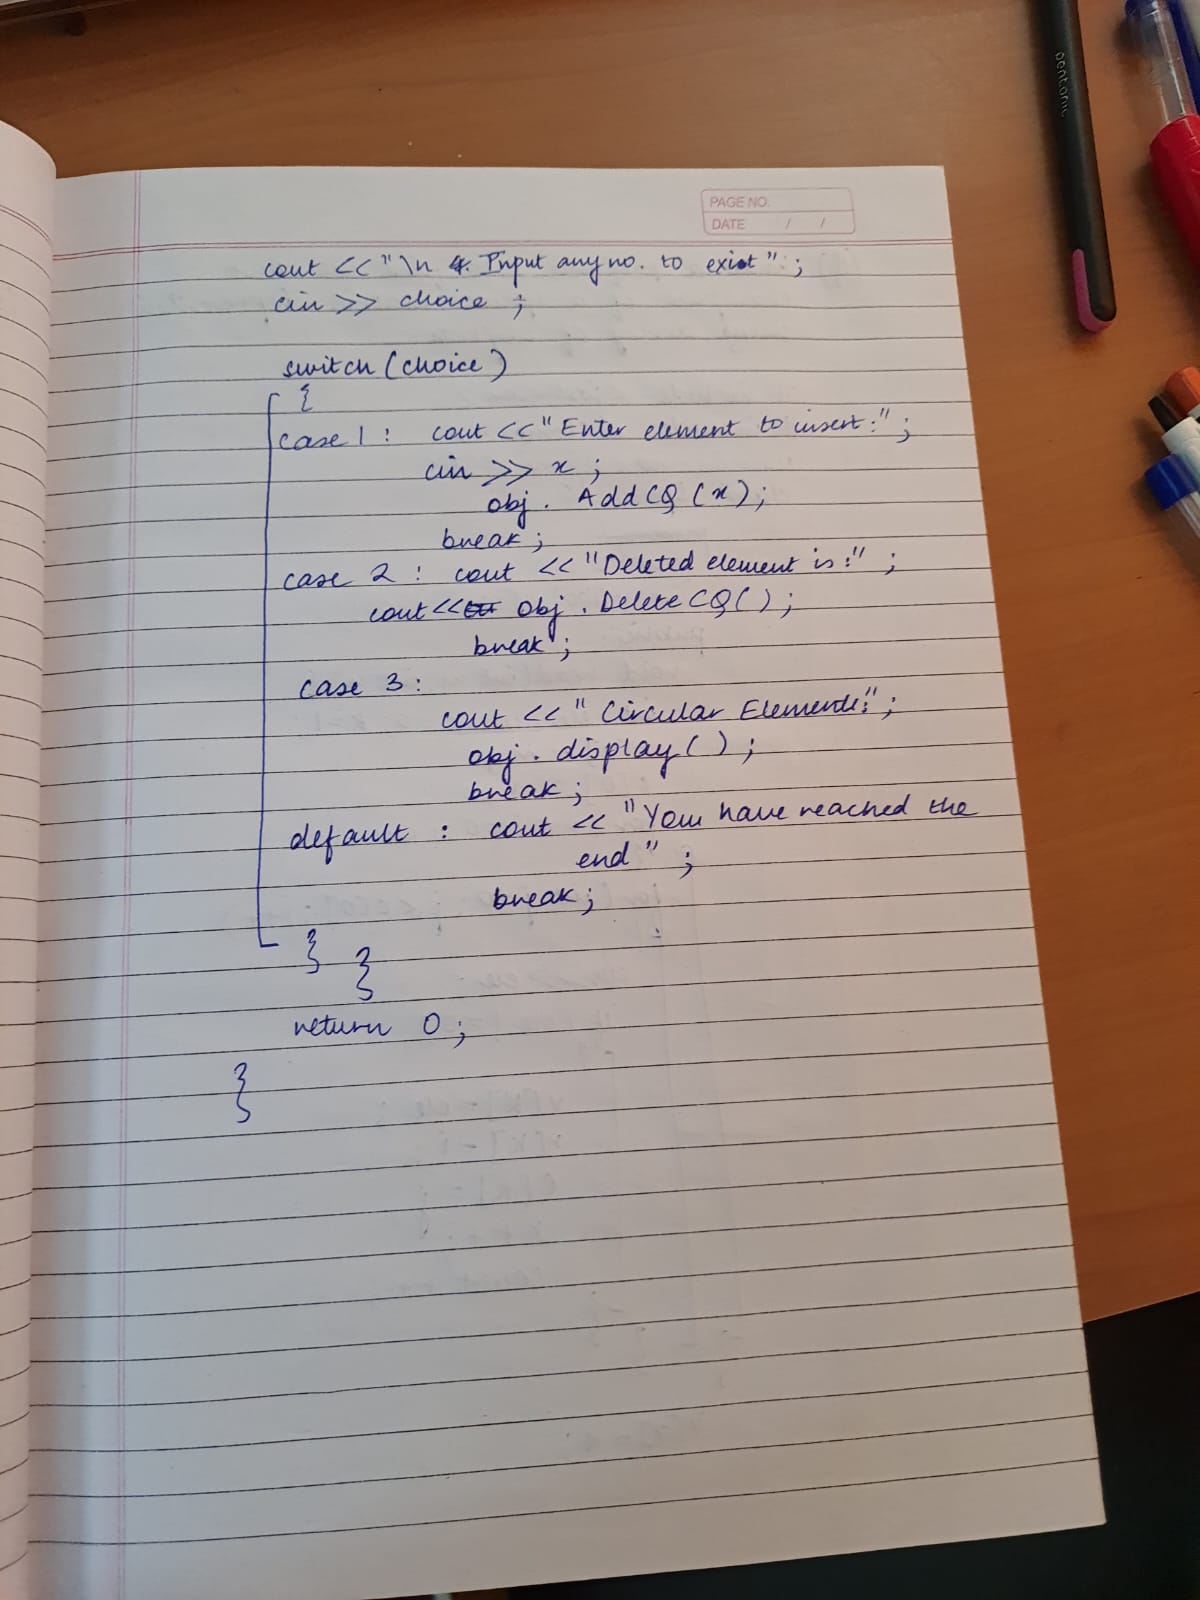 PAGE NO.
DATE / /
cout << "\n 4. Input any no. to exist" ;
cin >> choice ;
switch (choice)
{
case 1 : cout << "Enter element to insert:" ;
cin >> x ;
obj . AddCQ (x) ;
break ;
case 2 : cout << "Deleted element is:" ;
cout << obj . DeleteCQ( ) ;
break ;
case 3 :
cout << " Circular Elements:" ;
obj . display ( ) ;
break ;
default : cout << "You have reached the
end " ;
break ;
}
}
return 0 ;
}
pentonic